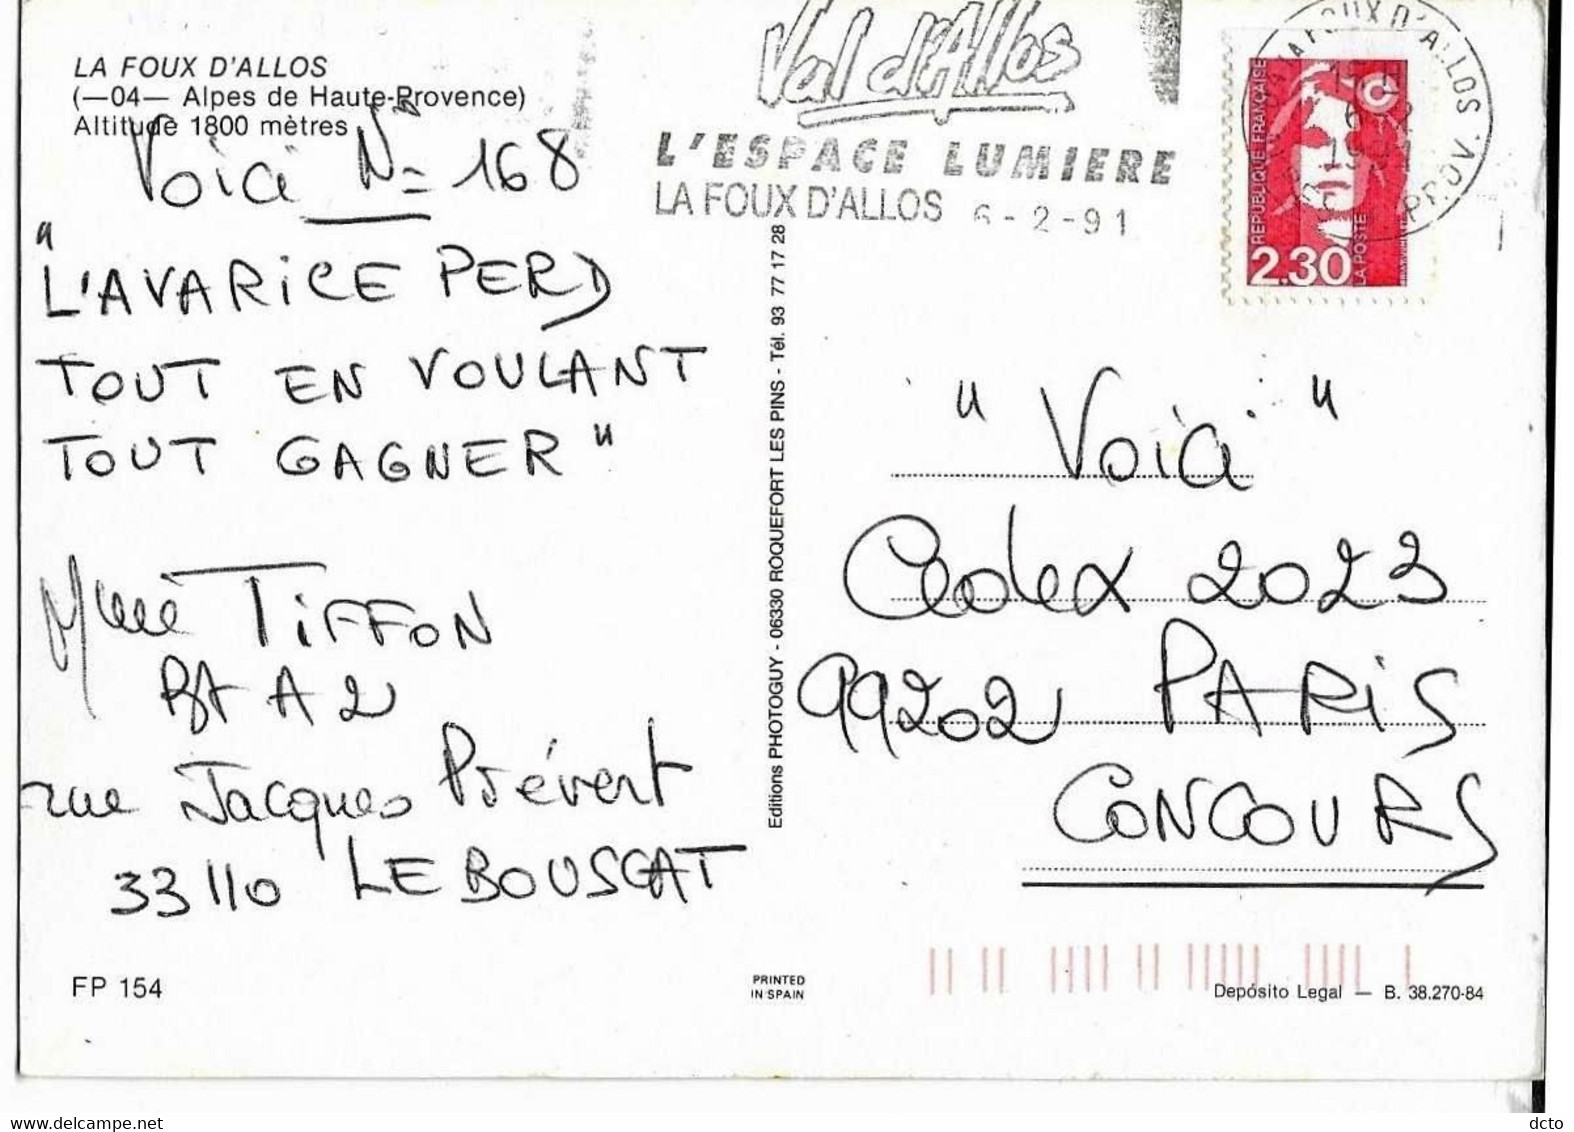 LA FOUX D'ALLOS
(—04— Alpes de Haute-Provence)
Altitude 1800 mètres
Voici N° 168
"L'AVARICE PERD
TOUT EN VOULANT
TOUT GAGNER"
Mme TIFFON
A2
rue Jacques Prévert
33110 LE BOUSCAT
FP 154
Val d'Allos
L'ESPACE LUMIERE
LA FOUX D'ALLOS 6-2-91
LA FOUX D'ALLOS
REPUBLIQUE FRANÇAISE
2.30
LA POSTE
Editions PHOTOGUY - 06330 ROQUEFORT LES PINS - Tél. 93 77 17 28
"Voici"
Cedex 2023
99202 PARIS
CONCOURS
PRINTED
IN SPAIN
Depósito Legal — B. 38.270-84
www.delcampe.net
dcto